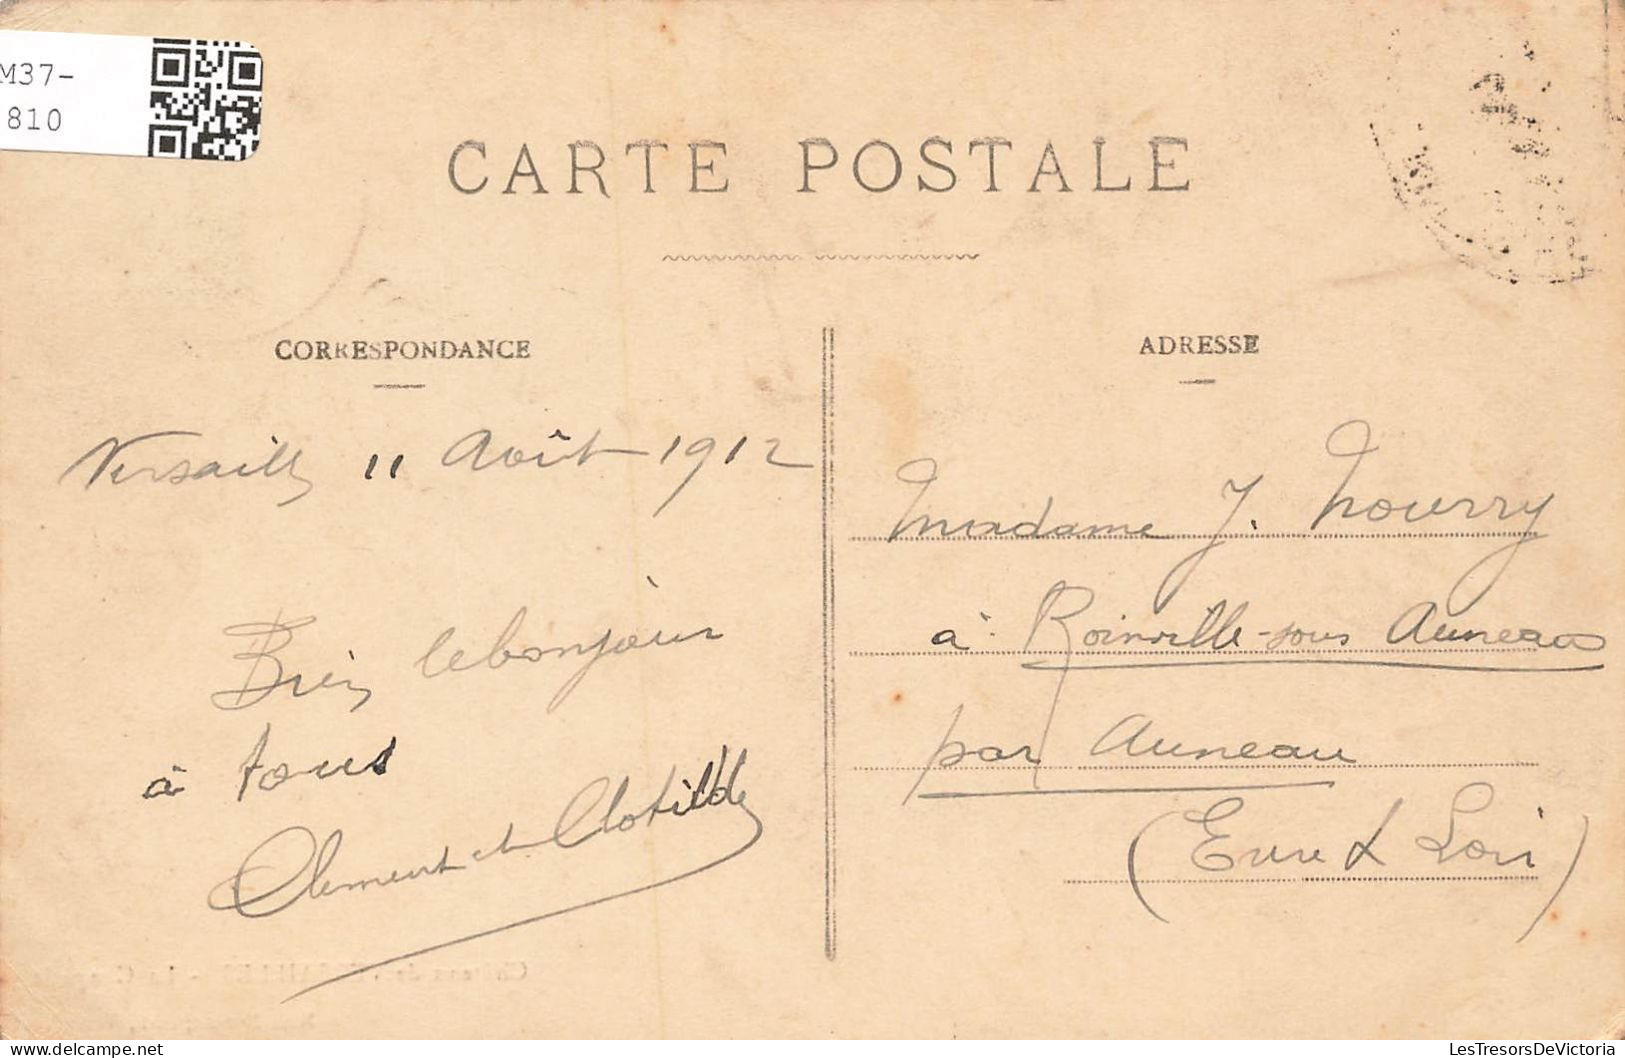 M37-
810
CARTE POSTALE
CORRESPONDANCE
Versailles 11 Août 1912
Bien le bonjour
à tous
Clement et Clotilde
ADRESSE
Madame J. Nourry
à Roinville-sous Auneau
par Auneau
(Eure & Loir)
Château de VERSAILLES
LesTresorsDeVictoria
delcampe.net